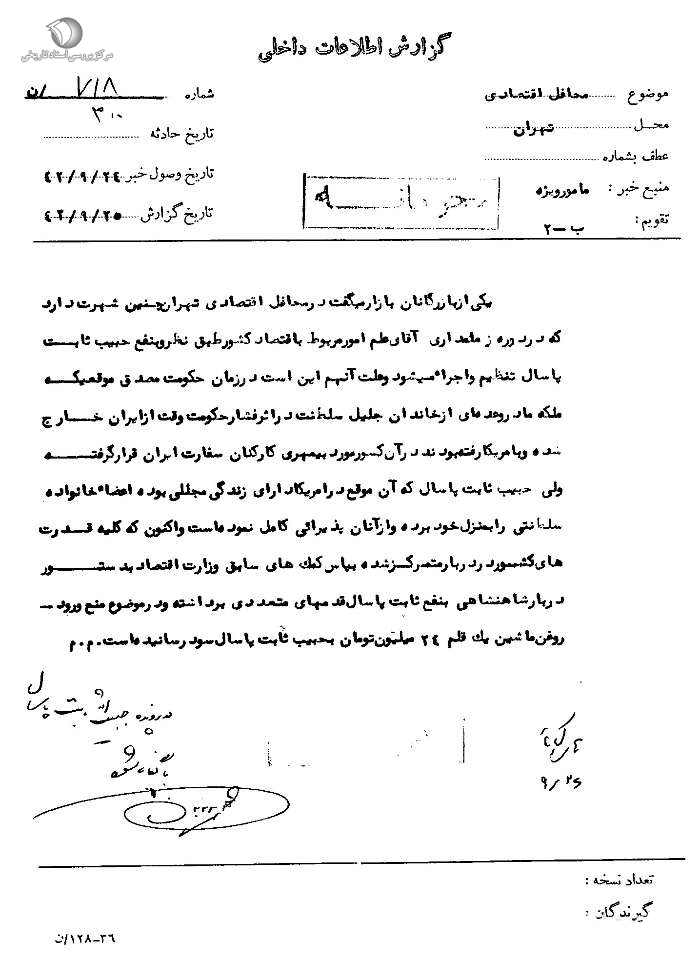 مرکز بررسی اسناد تاریخی
گزارش اطلاعات داخلی
موضوع محافل اقتصادی
محل تهران
عطف بشماره
منبع خبر : مامورویژه
تقویم : ب -۲
شماره ۷۱۸ /ن
۳۱۰
تاریخ حادثه
تاریخ وصول خبر ۴۲/۹/۲۴
تاریخ گزارش ۴۲/۹/۲۵
یکی ازبازرگانان بازارمیگفت درمحافل اقتصادی تهران چنین شهرت دارد
که دردوره زمامداری آقای علم امورمربوط باقتصاد کشورطبق نظروبنفع حبیب ثابت
پاسال تنظیم واجراء میشود وعلت آنهم این است درزمان حکومت مصدق موقعیکه
ملکه مادروعده ای ازخاندان جلیل سلطنت دراثرفشارحکومت وقت ازایران خارج
شده وبامریکارفته بودند درآن کشورمورد بیمهری کارکنان سفارت ایران قرارگرفته
ولی حبیب ثابت پاسال که آن موقع درامریکادارای زندگی مجللی بوده اعضاء خانواده
سلطنتی رابمنزل خود برده وازآنان پذیرائی کامل نموده است واکنون که کلیه قدرت
های کشوردردربارمتمرکزشده بپاس کمک های سابق وزارت اقتصاد بدستور
دربارشاهنشاهی بنفع ثابت پاسال قدمهای متعددی برداشته ودرموضوع منع ورود -
روغن ماشین یک قلم ۲۴ میلیون تومان بحبیب ثابت پاسال سود رسانیده است.م.م
درپرونده حبیب اله ثابت پاسال
بایگانی شود
۹/۲۶
تعداد نسخه :
گیرندگان :
۳۶-۱۲۸/ن